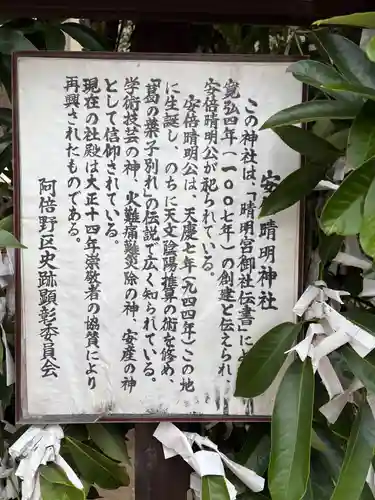 安 晴明神社
この神社は「晴明宮御社伝書」によ
寛弘四年(一〇〇七年)の創建と伝えられ
安倍晴明公が祀られている。
安倍晴明公は、天慶七年(九四四年)この地
に生誕し、のちに天文陰陽推算の術を修め、
「葛の葉子別れ」の伝説で広く知られている。
学術技芸の神、火難病難災除の神、安産の神
として信仰されている。
現在の社殿は大正十四年崇敬者の協賛により
再興されたものである。
阿倍野区史跡顕彰委員会